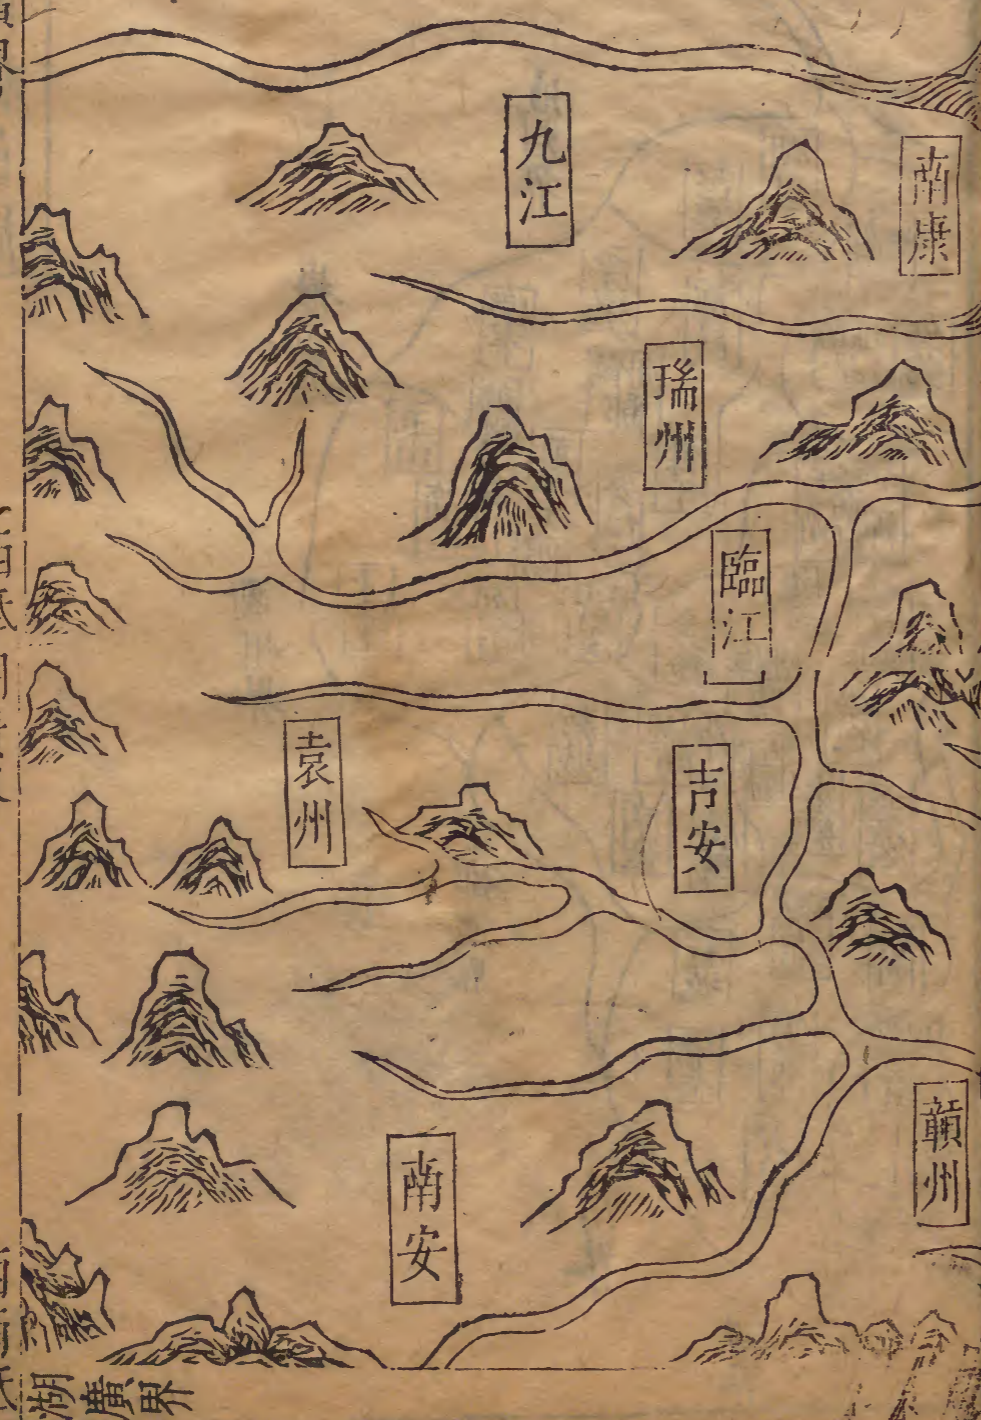 南康
九江
瑞州
臨江
吉安
袁州
贛州
南安
湖廣界